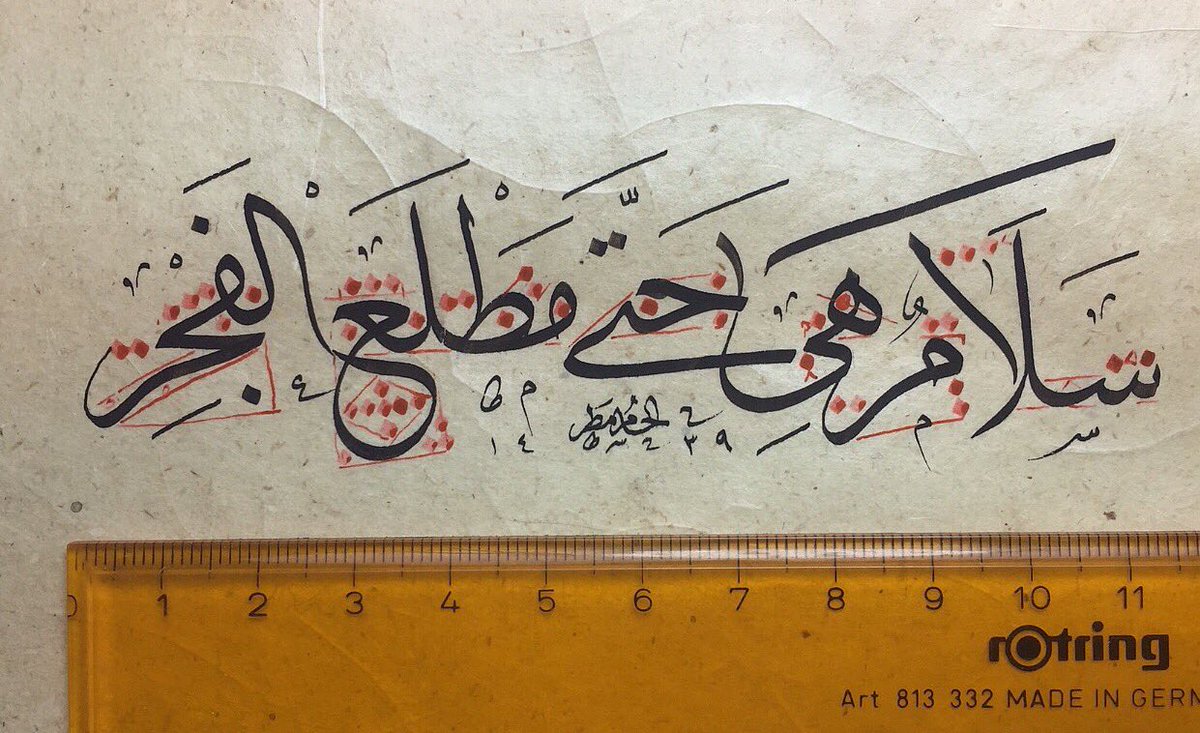 سلام هي حتى مطلع الفجر
0 1 2 3 4 5 6 7 8 9 10 11
rotring
Art 813 332 MADE IN GERM